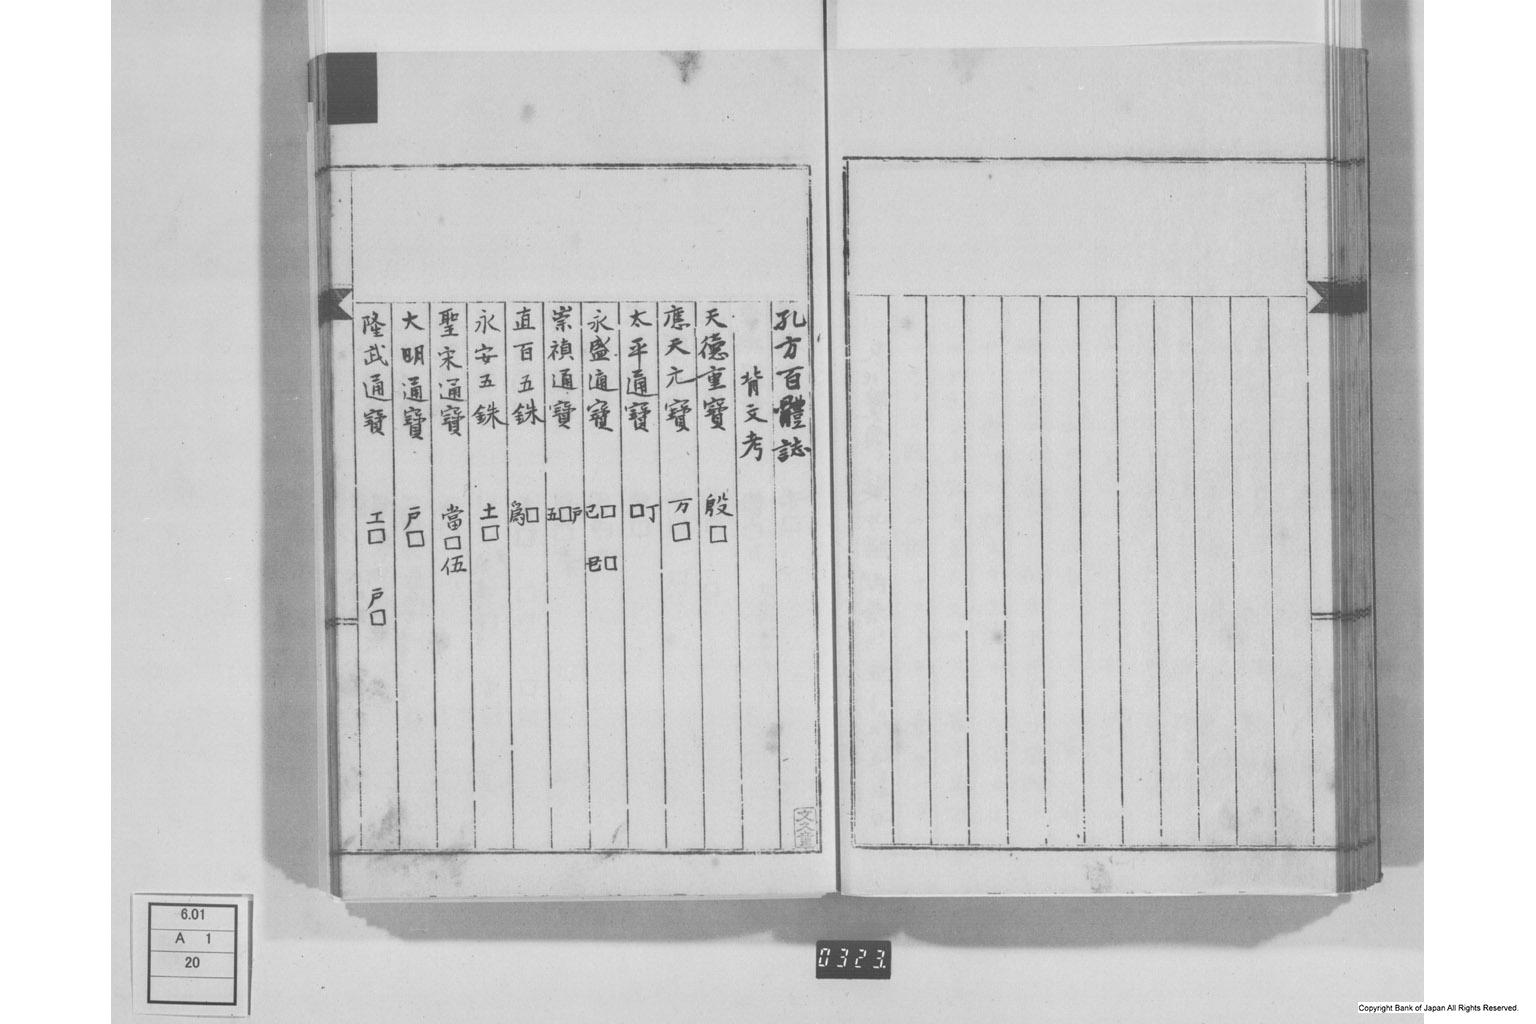 孔方百體誌
背文考
天德重寶 殷□
應天元寶 万□
太平通寶 □丁
永盛通寶 己□ 㠱□
崇禎通寶 五□戸
直百五銖 為□
永安五銖 土□
聖宋通寶 當□伍
大明通寶 戸□
隆武通寶 工□ 戸□
6.01
A 1
20
0323.
Copyright Bank of Japan All Rights Reserved.